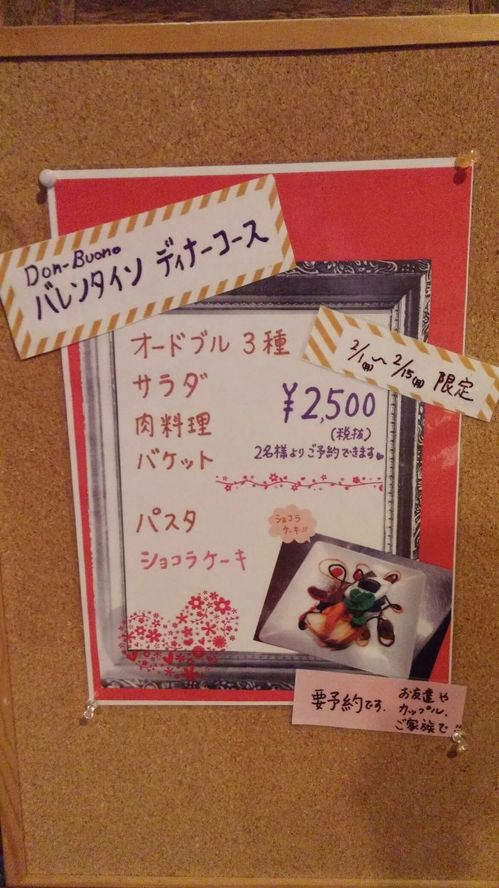 Don-Buono
バレンタイン ディナーコース
2/1(月)〜2/15(月) 限定
オードブル 3種
サラダ
肉料理
バケット
¥2,500
(税抜)
2名様よりご予約できます♥
パスタ
ショコラケーキ
ショコラ
ケーキ!!
要予約です.
お友達や
カップル、
ご家族で!!